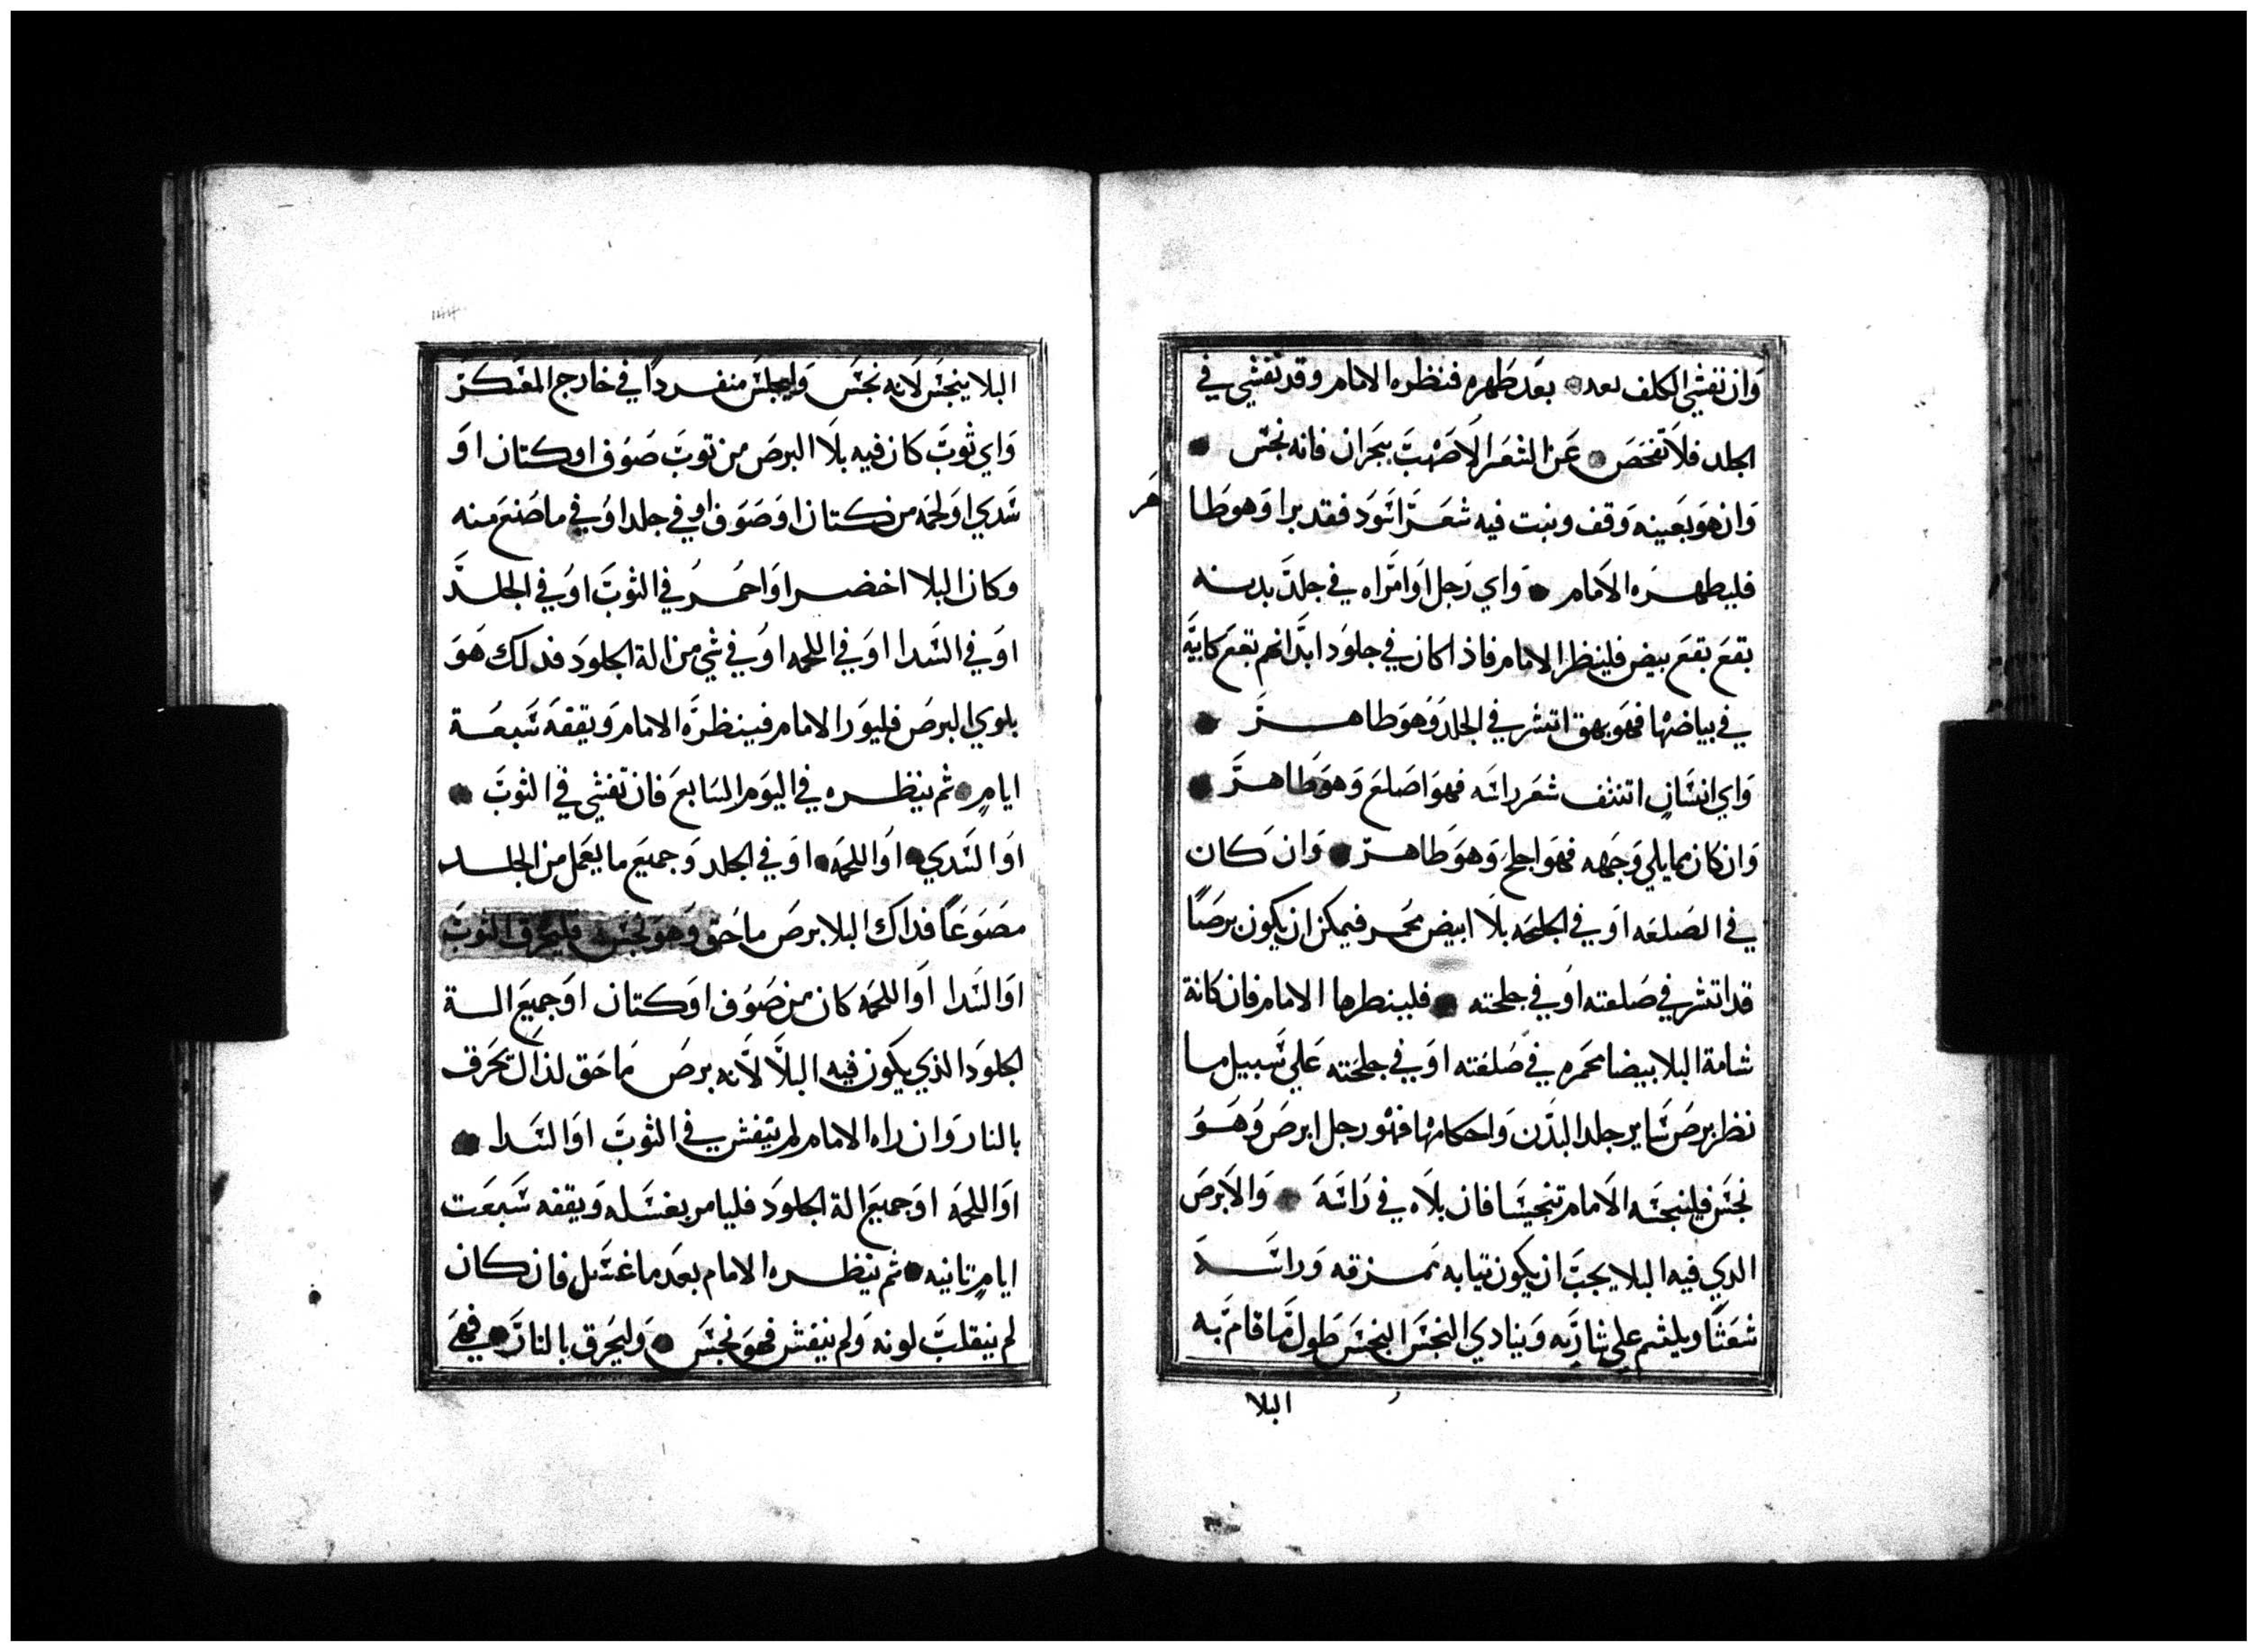 وان تفشي الكلف بعد بعد طهره فنظره الامام وقد تفشي في
الجلد فلا تفحص عن الشعر الاصهب بجران فانه نجس
وان هو بعينه وقف ونبت فيه شعر اسود فقد برا وهو طا
هر
فليطهره الامام واي رجل او امراه في جلد بدنه
بقع بقع بيض فلينظر الامام فاذا كان في جلود ابدانهم بقع كابيه
في بياضها فهو بهق انتشر في الجلد وهو طاهر
واي انسان انتثف شعر راسه فهو اصلع وهو طاهر
وان كان مما يلي وجهه فهو اجلح وهو طاهر وان كان
في الصلعه او في الجلحه بلا ابيض محمر فيمكن ان يكون برصا
قد انتشر في صلعته او في جلحته فلينظرها الامام فان كانة
شامة البلا بيضا محمره في صلعته او في جلحته علي سبيل ما
نظر برص ساير جلد البدن واحكامها فهو رجل ابرص وهو
نجس فلينجسه الامام تنجيسا فان بلاه في راسه والابرص
الدي فيه البلا يجب ان يكون تيابه ممزقه وراسه
شعثا ويلثم علي شاربه وينادي النجس النجس طول ما قام به
البلا
البلا ينجس لانه نجس وليجلس منفردا في خارج المعسكر
واي ثوب كان فيه بلا البرص من توب صوف او كتان او
سدي او لحمه من كتان او صوف او في جلد او في ما صنع منه
وكان البلا اخضر او احمر في الثوب او في الجلد
او في السدا او في اللحمه او في شي من الة الجلود فدلك هو
بلوي البرص فليورا الامام فينظره الامام ويقفه سبعة
ايام ثم ينظره في اليوم السابع فان تفشي في الثوب
او السدي او اللحمه او في الجلد وجميع ما يعمل من الجلد
مصوعا فداك البلا برص ماحق وهو نجس فليحرق الثوب
او السدا او اللحمه كان من صوف او كتان او جميع الة
الجلود الذي يكون فيه البلا لانه برص ماحق لذاك تحرق
بالنار وان راه الامام لم يتفش في الثوب او السدا
او اللحمه او جميع الة الجلود فليامر بغسله ويقفه سبعت
ايام تانيه ثم ينظره الامام بعد ما غسل فان كان
لم ينقلب لونه ولم ينفش فهو نجس وليحرق بالنار فهي